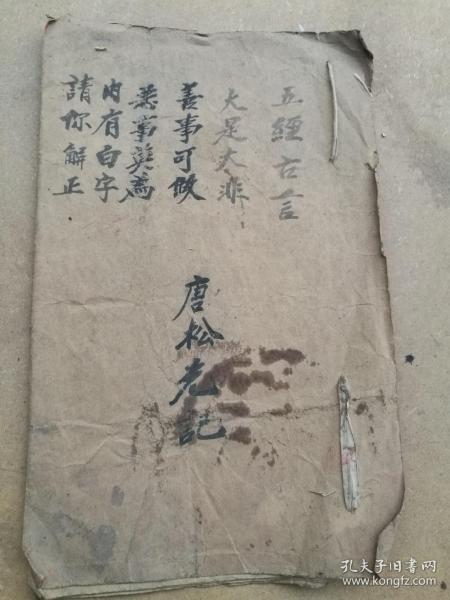 五經古言
大是大非
善事可做
恶事莫為
內有白字
請你解正
唐松光記
孔夫子旧书网
www.kongfz.com